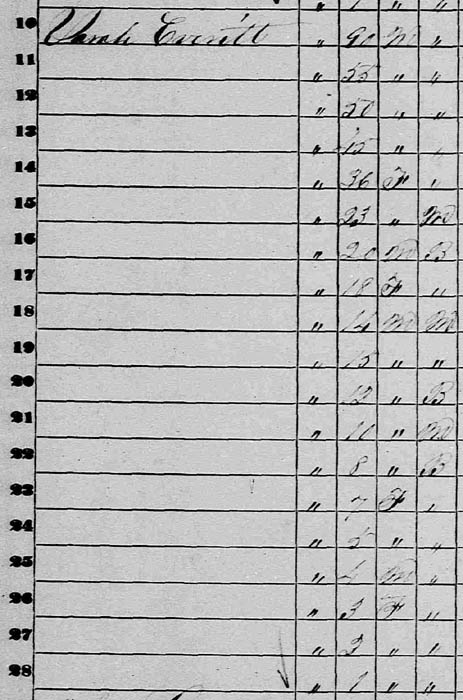 " 1 " "
10 Sarah Everett " 90 M "
11 " 55 " "
12 " 50 " "
13 " 45 " "
14 " 36 F "
15 " 23 " M
16 " 20 M B
17 " 18 F "
18 " 14 M M
19 " 15 " "
20 " 12 " B
21 " 10 " M
22 " 8 " B
23 " 7 F "
24 " 5 " "
25 " 4 M "
26 " 3 F "
27 " " "
28 " 1 " "